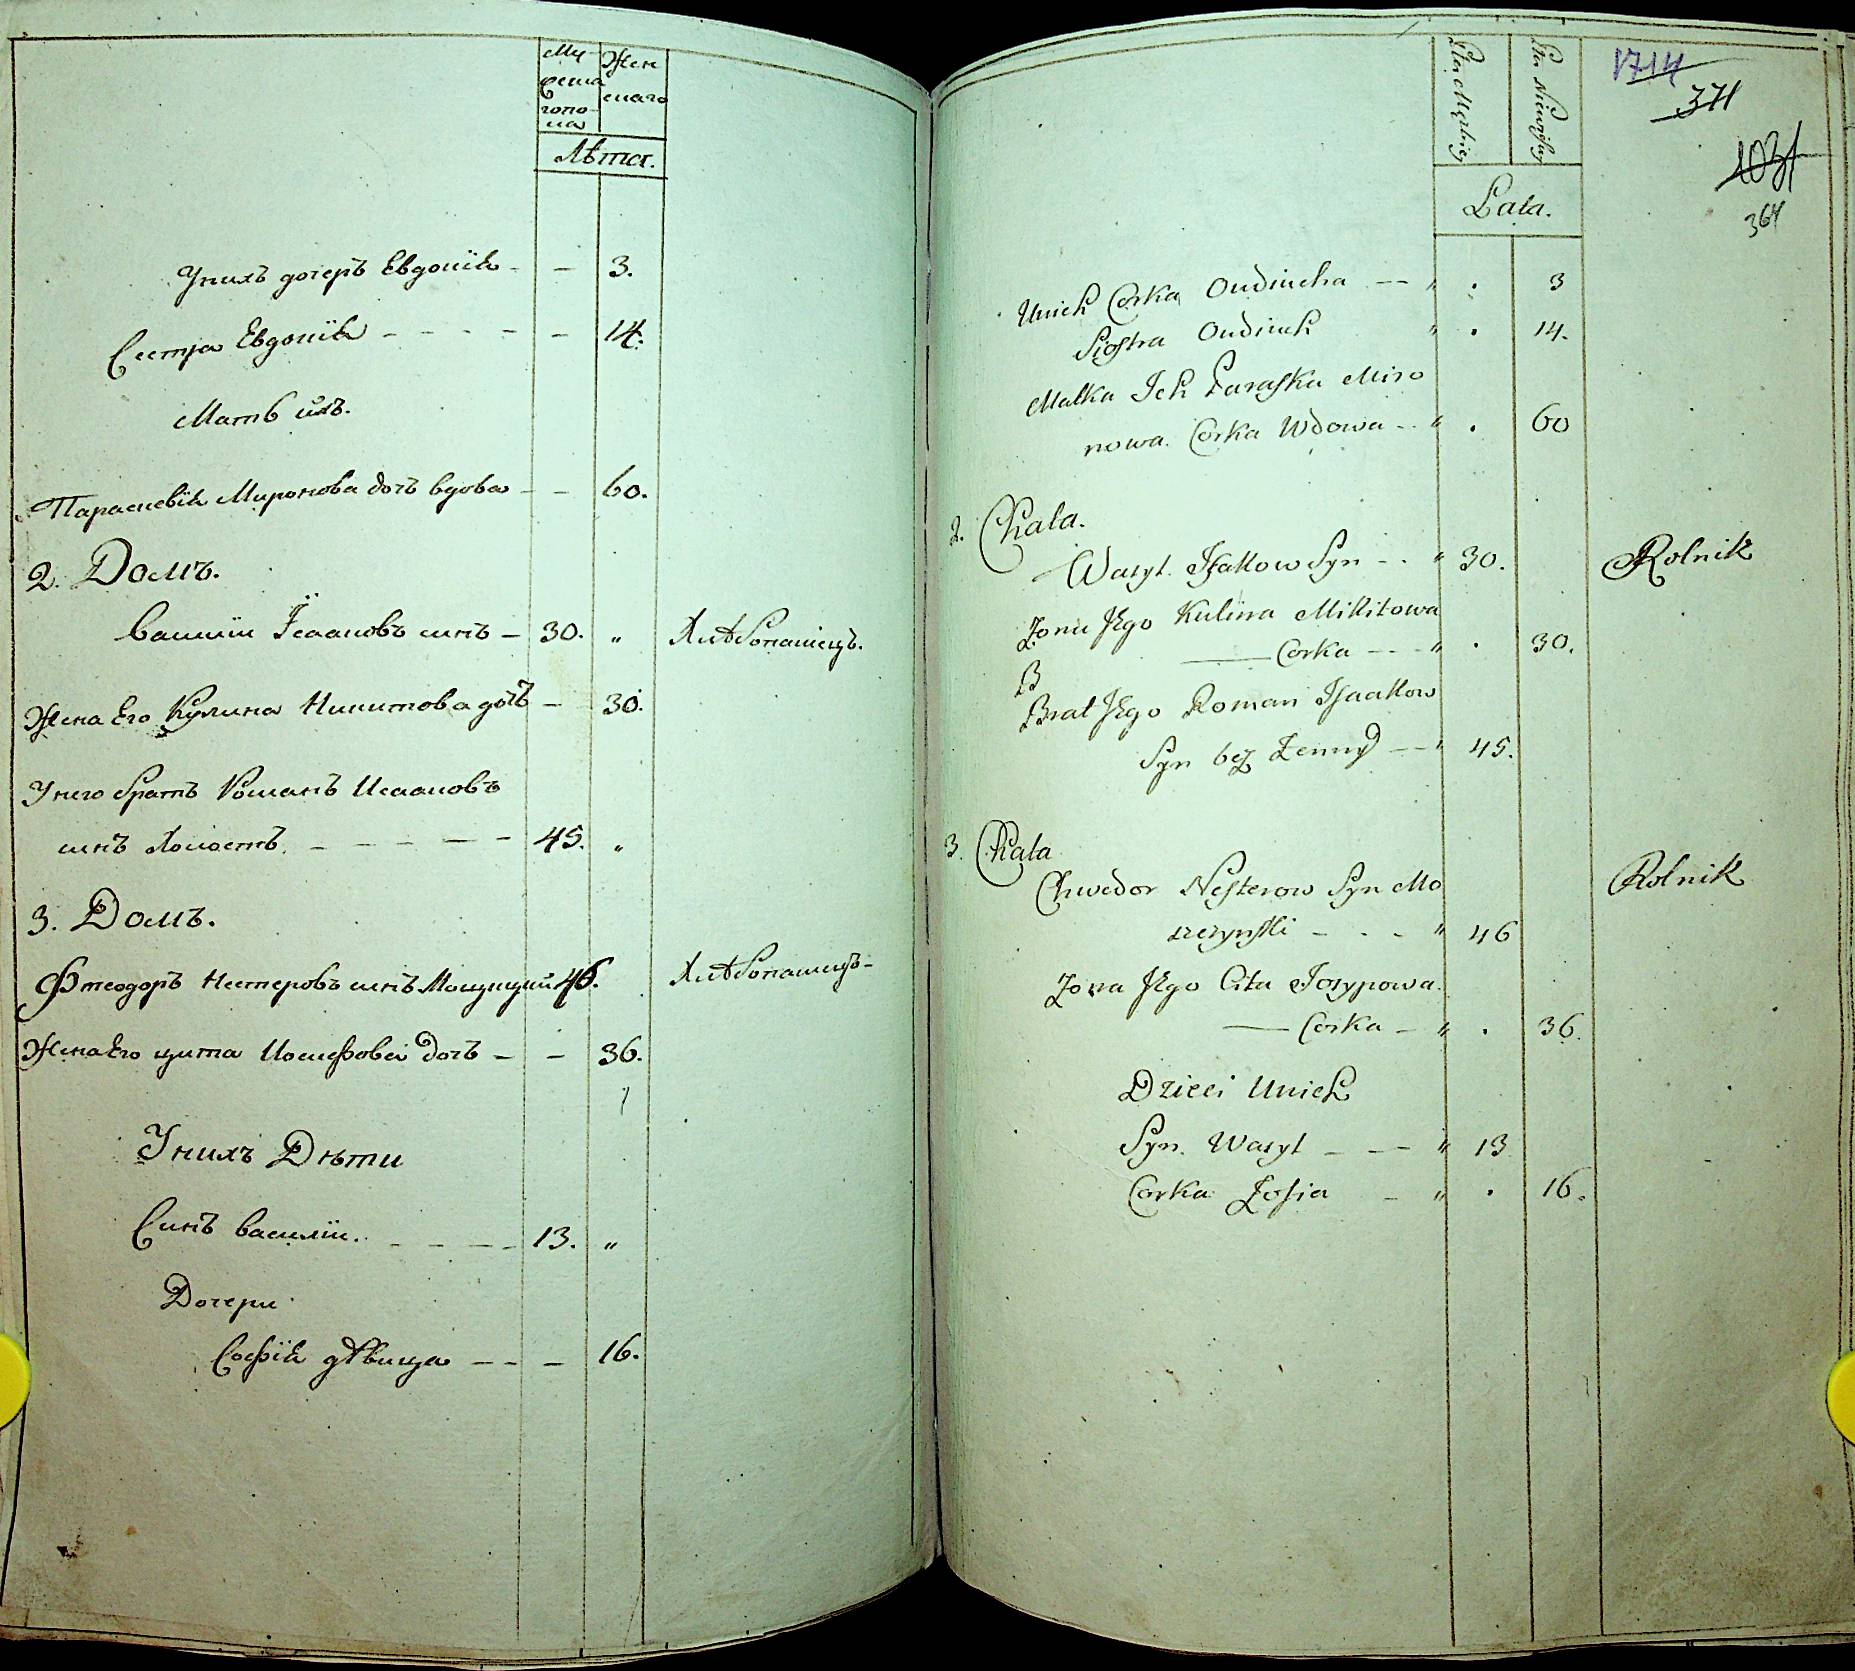 Му-
жеска
го по-
ла
Жен
скаго
Лѣта.
Унихъ дочеръ Евдокіѧ - - 3.
Сестра Евдокіѧ - - - - - 14.
Мать ихъ.
Параскевіѧ Миронова дочъ вдова - - 60.
2. Домъ.
Василіи Ісааковъ синъ - 30. „ Хлѣбопашецъ.
Жена Его Кулина Никитова дочъ - 30.
У него братъ Романъ Исааковъ
синъ Холостъ. - - - - - 45. „
3. Домъ.
Фтеодоръ Нестеровъ синъ 46. Хлѣбопашецъ-
Жена Его цита Иосифова дочъ - - 36.
Унихъ Дѣти
Синъ Василіи. - - - - 13. „
Дочери
Софіѧ дѣвица - - - 16.
1714
371
1031
364
Lata.
Unich Corka Oudiucha - - „ . 3
Siostra Oudiuch „ . 14.
Matka Ich Paraska Miro
nowa. Corka Wdowa - - „ . 60
2. Chata.
Wasyl Isakow Syn - . „ 30. Rolnik
Zona Jego Kulina Mikitowa
Corka - - - „ . 30.
B
Brat Jego Roman Isaakow
Syn bez Zenny - - „ 45.
3. Chata
Chwedor Nesterow Syn Mo
szczynski - . - „ 46 Rolnik
Zona Jego Cita Josypowa.
Corka - „ . 36.
Dzieci Unich
Syn. Wasyl - - - „ 13
Corka Zofia - „ . 16.